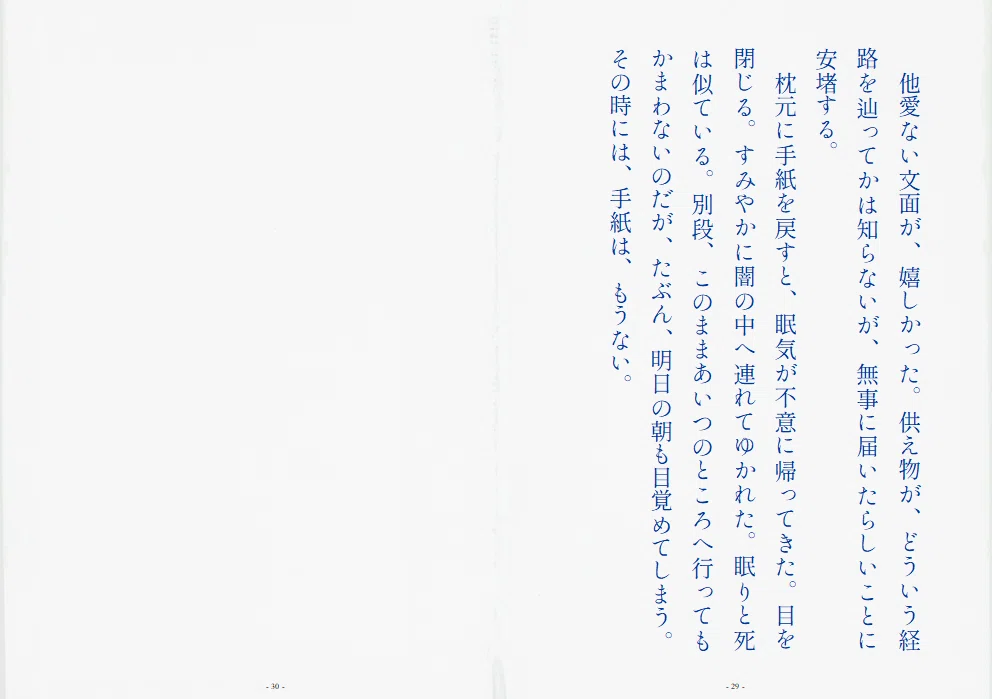 他愛ない文面が、嬉しかった。供え物が、どういう経
路を辿ってかは知らないが、無事に届いたらしいことに
安堵する。
枕元に手紙を戻すと、眠気が不意に帰ってきた。目を
閉じる。すみやかに闇の中へ連れてゆかれた。眠りと死
は似ている。別段、このままあいつのところへ行っても
かまわないのだが、たぶん、明日の朝も目覚めてしまう。
その時には、手紙は、もうない。
- 29 -
- 30 -